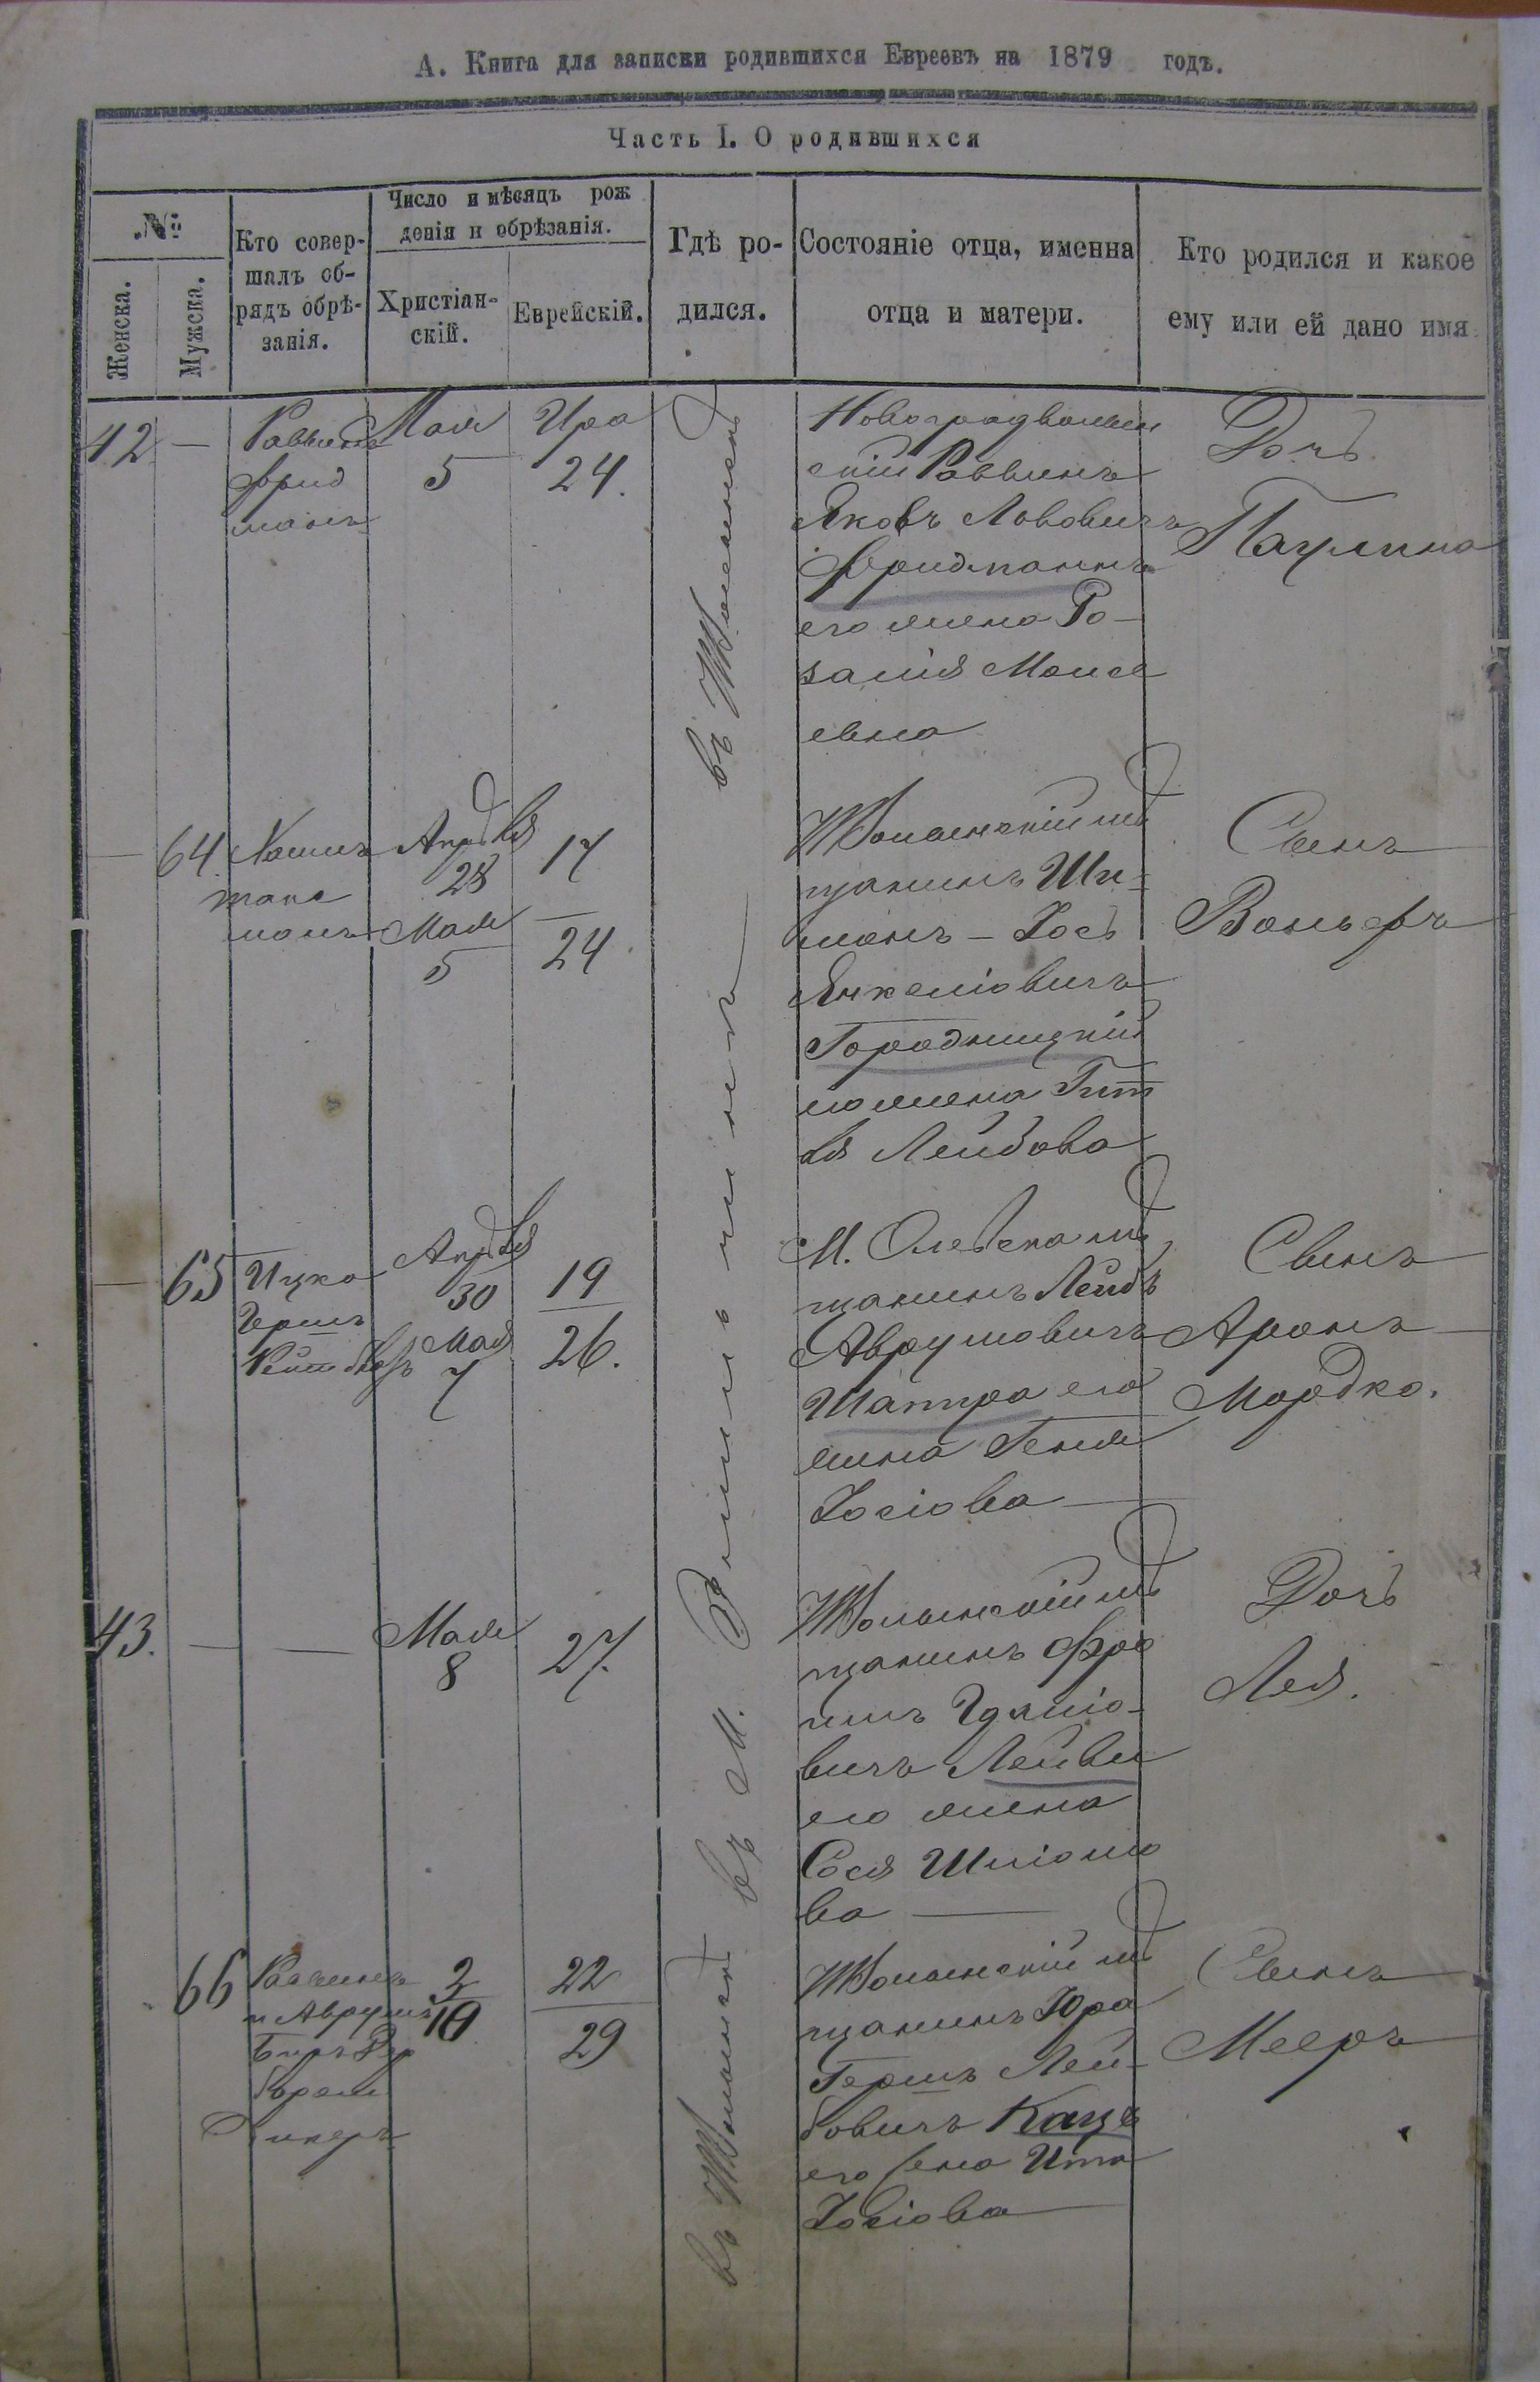 А. Книга для записки родившихся Евреевъ на 1879 годъ.
Часть I. О родившихся
№
Женска.
Мужска.
Кто совер-
шалъ об-
рядъ обрѣ-
занія.
Число и мѣсяцъ рож
денія и обрѣзанія.
Христіан-
скій.
Еврейскій.
Гдѣ ро-
дился.
Состояніе отца, именна
отца и матери.
Кто родился и какое
ему или ей дано имя
42
—
Раввинъ
Фрид
манъ
Мая
5
Ира
24.
Новоградволын
скій Раввинъ
Яковъ Лвовичъ
Фридманнъ
его жена Ро-
залія Моисе
евна
Дочь
Паулина
— 64
манъ
Апрѣля
28
Мая
5
17
24
щанинъ Ши-
монъ-Іось
Янкеліовичъ
Городницкій
его жена Гит
ля Лейбова
Сынъ
Вольфъ
— 65
Ицко
Гершъ
Апрѣля
30
Мая
7
19
26.
М. Олевска мѣ
щанинъ Лейбъ
Аврумовичъ
Шапира его
жена Геня
Іосіова
Сынъ
Аронъ
Мордко.
43. — —
Мая
8
27.
щанинъ Фро
имъ
вичъ Лейви
его жена
Сося Шліомо
ва
Дочь
Лея.
66
Раввинъ
и Аврумъ
Беръ
2
10
22
29
щанинъ
Гершъ Лей-
бовичъ Кацъ
его жена Ита
Іосіова
Сынъ
Мееръ